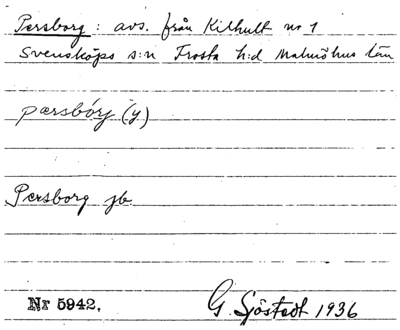 Persborg : avs. från Kilhult nr 1
Svensköps s:n Frosta h:d Malmöhus län
pærsbórj (y)
Persborg jb.
Nr 5942.
G. Sjöstedt 1936